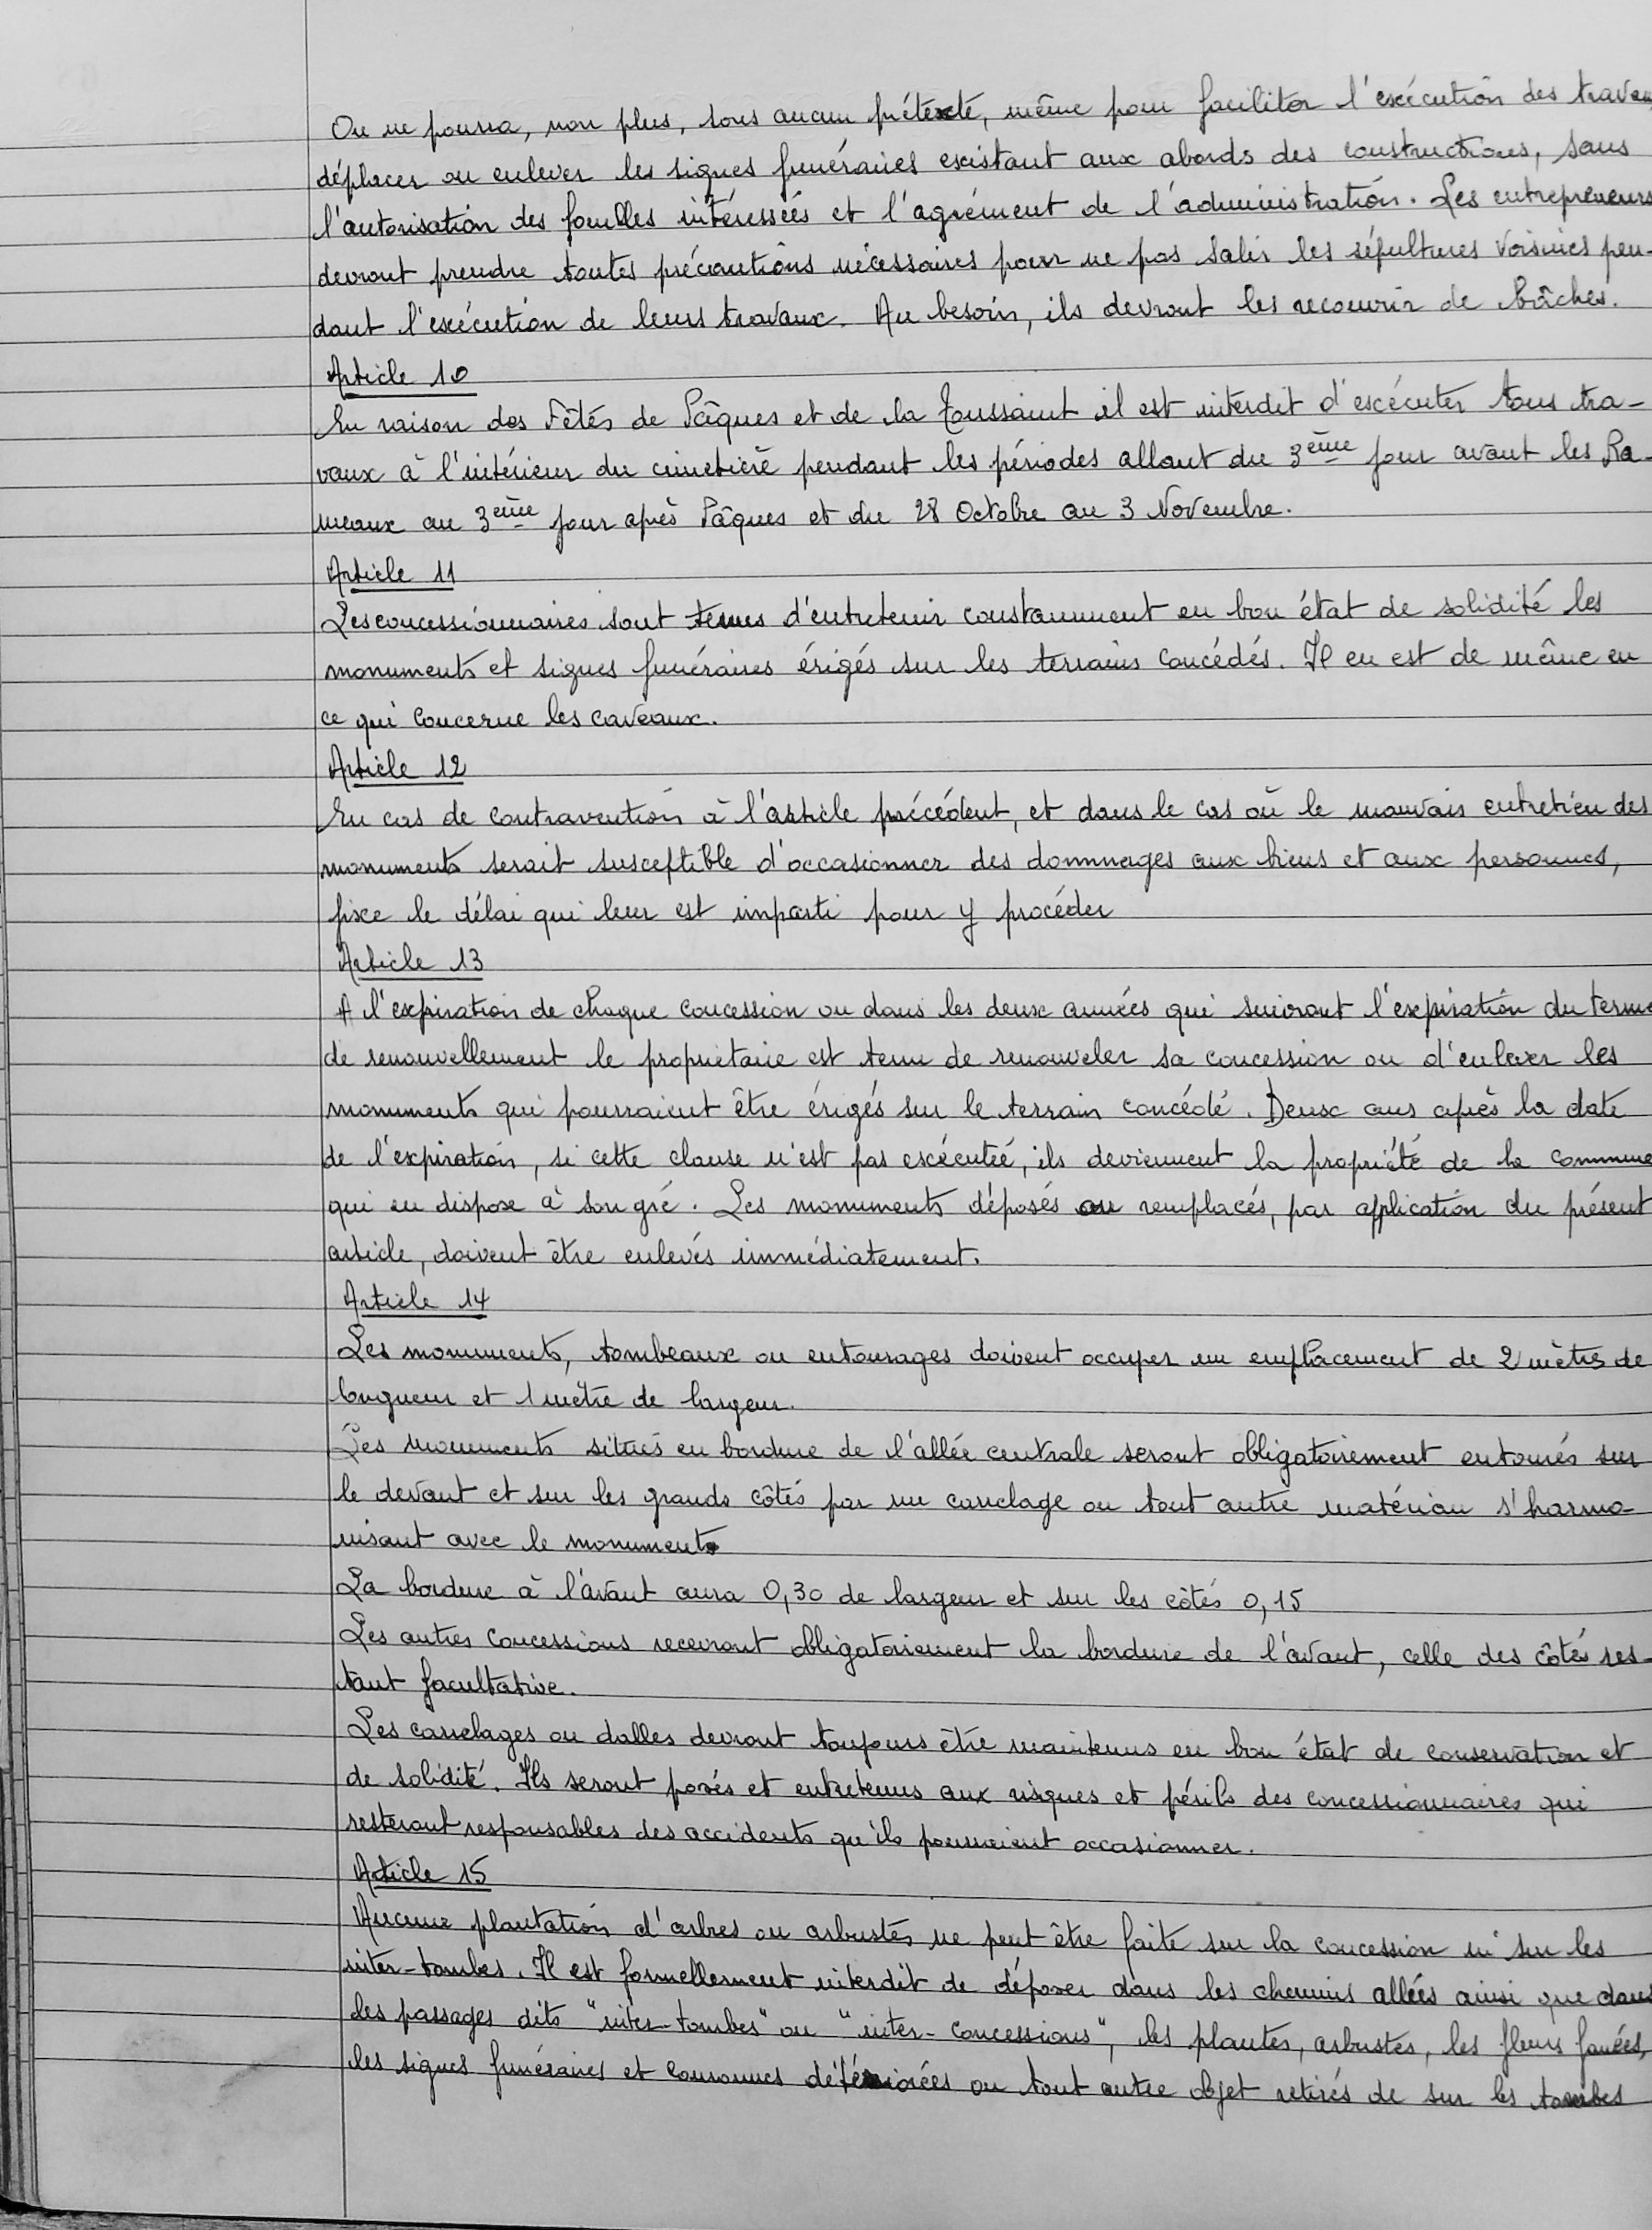 On ne pourra, non plus, sous aucun prétexte, même pour faciliter l'exécution des travaux
déplacer ou enlever les signes funéraires existant aux abords des constructions, sans
l'autorisation des familles intéressées et l'agrément de l'administration. Les entrepreneurs
devront prendre toutes précautions nécessaires pour ne pas salir les sépultures voisines pen-
dant l'exécution de leurs travaux. Au besoin, ils devront les recouvrir de bâches.
Article 10
En raison des Fêtes de Pâques et de la Toussaint il est interdit d'exécuter tous tra-
vaux à l'intérieur du cimetière pendant les périodes allant du 3ème jour avant les Ra-
meaux au 3ème jour après Pâques et du 28 Octobre au 3 Novembre.
Article 11
Les concessionnaires sont tenus d'entretenir constamment en bon état de solidité les
monuments et signes funéraires érigés sur les terrains concédés. Il en est de même en
ce qui concerne les caveaux.
Article 12
En cas de contravention à l'article précédent, et dans le cas où le mauvais entretien des
monuments serait susceptible d'occasionner des dommages aux biens et aux personnes,
fixe le délai qui leur est imparti pour y procéder
Article 13
A l'expiration de chaque concession ou dans les deux années qui suivront l'expiration du terme
de renouvellement le propriétaire est tenu de renouveler sa concession ou d'enlever les
monuments qui pourraient être érigés sur le terrain concédé. Deux ans après la date
de l'expiration, si cette clause n'est pas exécutée, ils deviennent la propriété de la commune
qui en dispose à son gré. Les monuments déposés ou remplacés, par application du présent
article, doivent être enlevés immédiatement.
Article 14
Les monuments, tombeaux ou entourages doivent occuper un emplacement de 2 mètres de
longueur et 1 mètre de largeur.
Les monuments situés en bordure de l'allée centrale seront obligatoirement entourés sur
le devant et sur les grands côtés par un carrelage ou tout autre matériau s'harmo-
nisant avec le monument.
La bordure à l'avant aura 0,30 de largeur et sur les côtés 0,15
Les autres concessions recevront obligatoirement la bordure de l'avant, celle des côtés res-
tant facultative.
Les carrelages ou dalles devront toujours être maintenus en bon état de conservation et
de solidité. Ils seront posés et entretenus aux risques et périls des concessionnaires qui
resteront responsables des accidents qu'ils pourraient occasionner.
Article 15
Aucune plantation d'arbres ou arbustes ne peut être faite sur la concession ni sur les
inter-tombes. Il est formellement interdit de déposer dans les chemins allées ainsi que dans
les passages dits "inter-tombes" ou "inter-concessions", les plantes, arbustes, les fleurs fanées,
les signes funéraires et couronnes détériorées ou tout autre objet retirés de sur les tombes